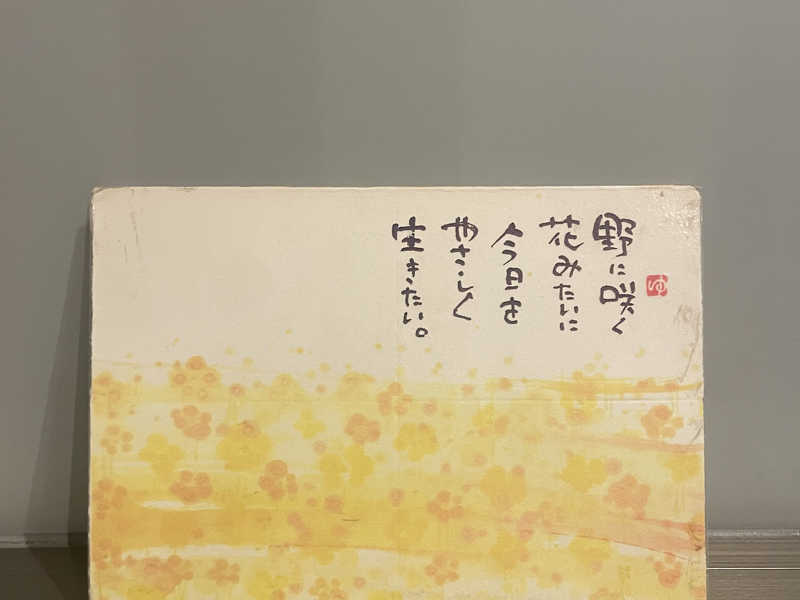 野に咲く
花みたいに
今日を
やさしく
生きたい。
ゆ